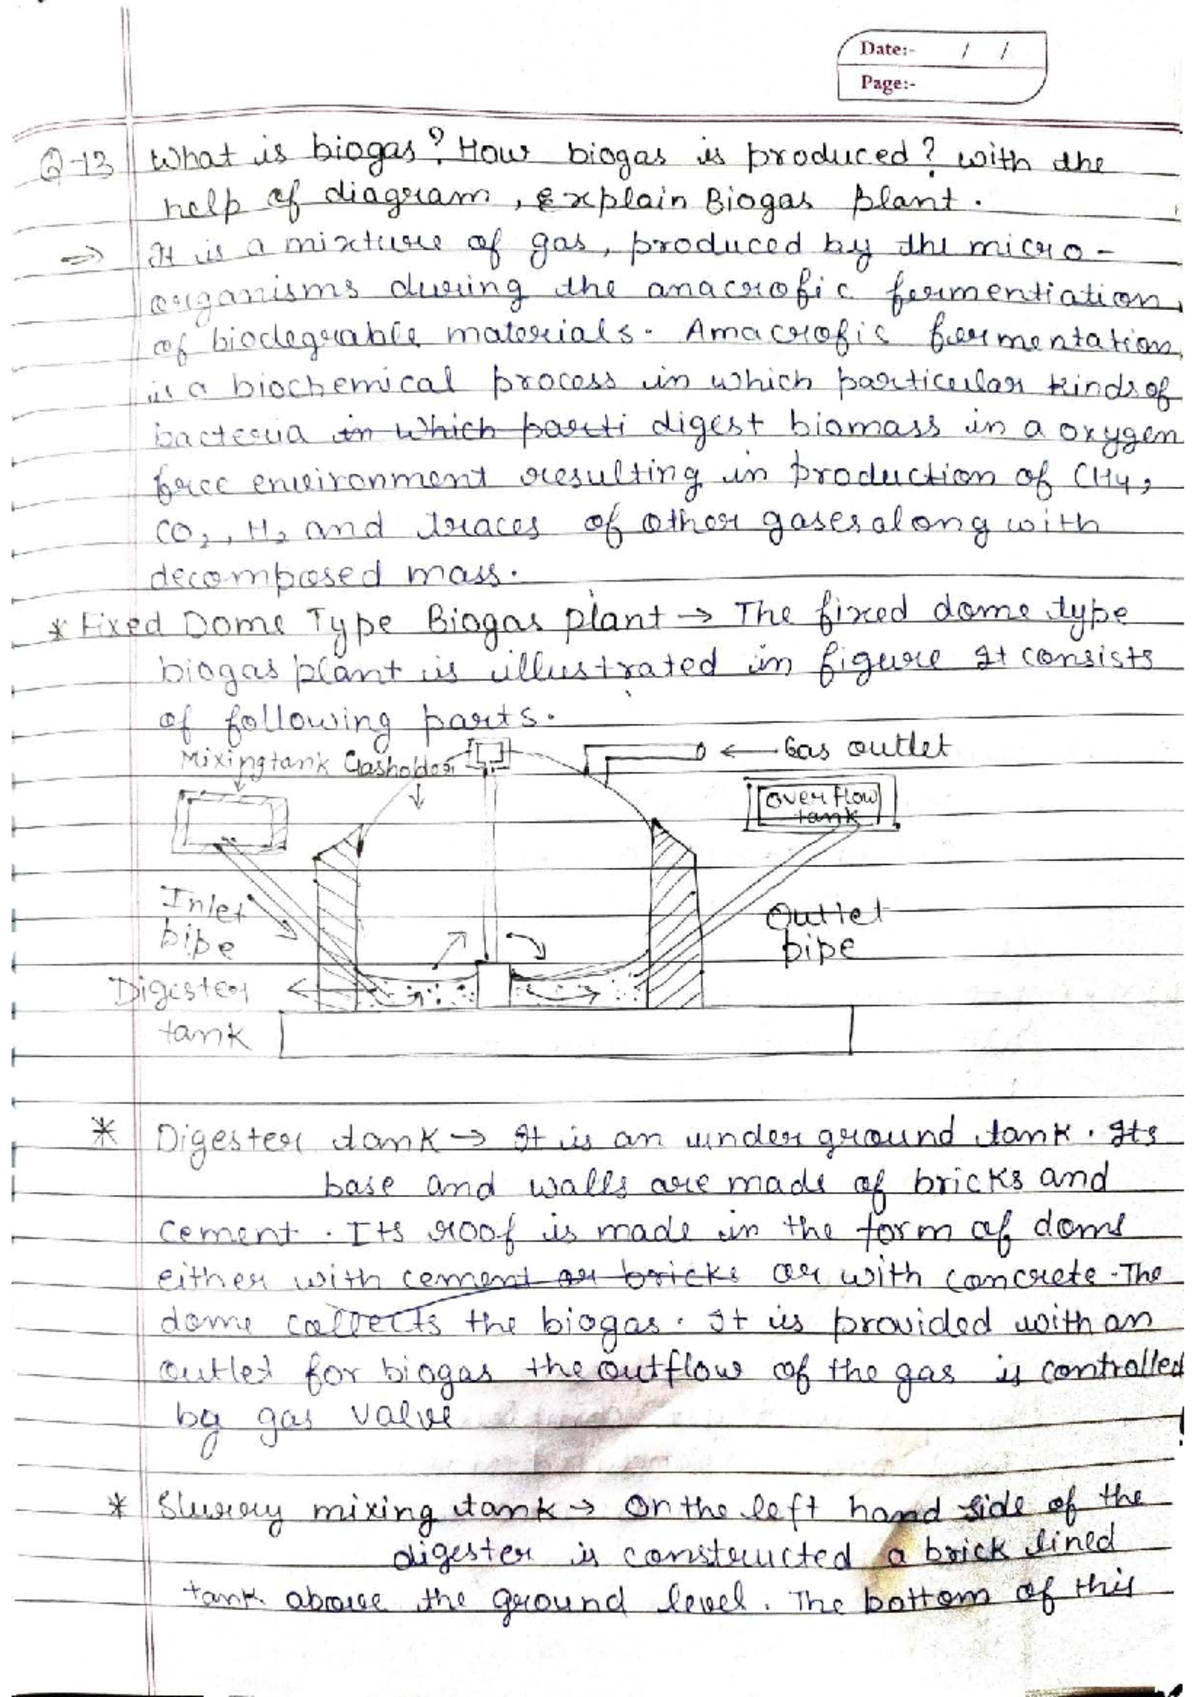 Date:- / /
Page:-
Q-13 What is biogas? How biogas is produced? with the
help of diagram, Explain Biogas plant.
⇒ It is a mixture of gas, produced by the micro-
organisms during the anacrofic fermentiation
of biodegrable materials. Amacrofic fermentation
is a biochemical process in which particular kinds of
bacteria in which parti digest biomass in a oxygen
free environment resulting in production of CH4,
CO2, H2 and traces of other gases along with
decomposed mass.
* Fixed Dome Type Biogas plant → The fixed dome type
biogas plant is illustrated in figure It consists
of following parts.
Mixing tank Gasholder ← Gas outlet
over flow
tank
Inlet
pipe
Outlet
pipe
Digester
tank
* Digester tank → It is an under ground tank. Its
base and walls are made of bricks and
cement. Its roof is made in the form of dome
either with cement or bricks or with concrete. The
dome collects the biogas. It is provided with an
outlet for biogas the outflow of the gas is controlled
by gas valve
* Slurry mixing tank → On the left hand side of the
digester is constructed a brick lined
tank above the ground level. The bottom of this